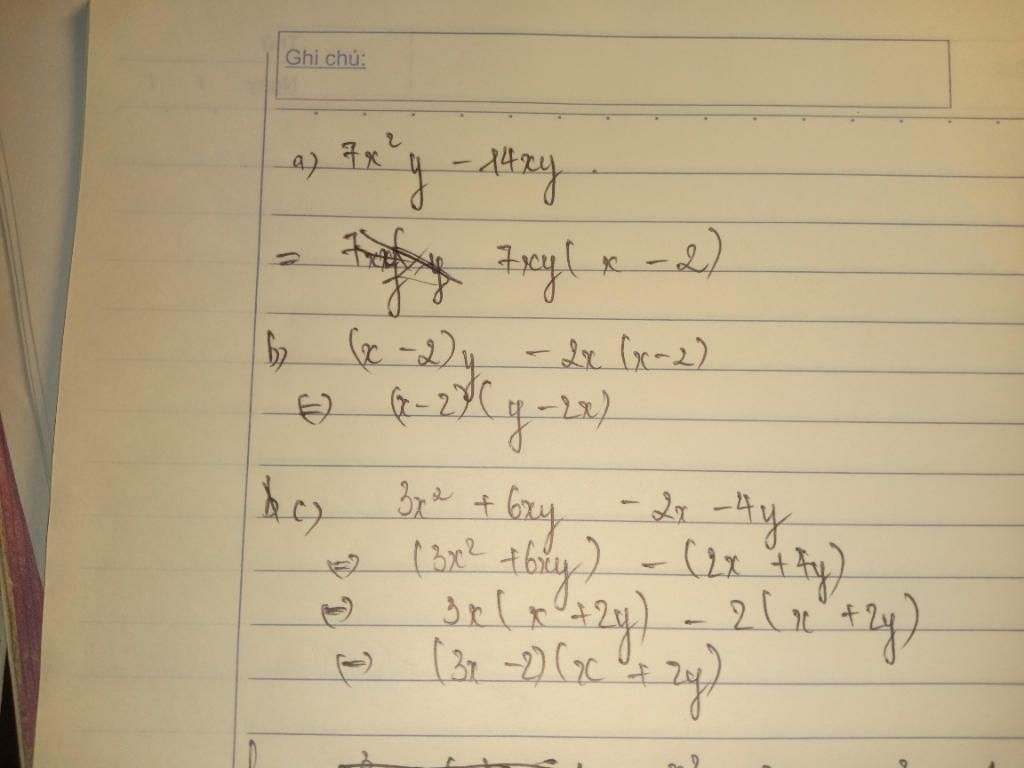 Ghi chú:
a) 7x²y - 14xy.
= 7xy(x - 2)
b) (x - 2)y - 2x(x - 2)
⇔ (x - 2)(y - 2x)
c) 3x² + 6xy - 2x - 4y
⇔ (3x² + 6xy) - (2x + 4y)
⇔ 3x(x + 2y) - 2(x + 2y)
⇔ (3x - 2)(x + 2y)